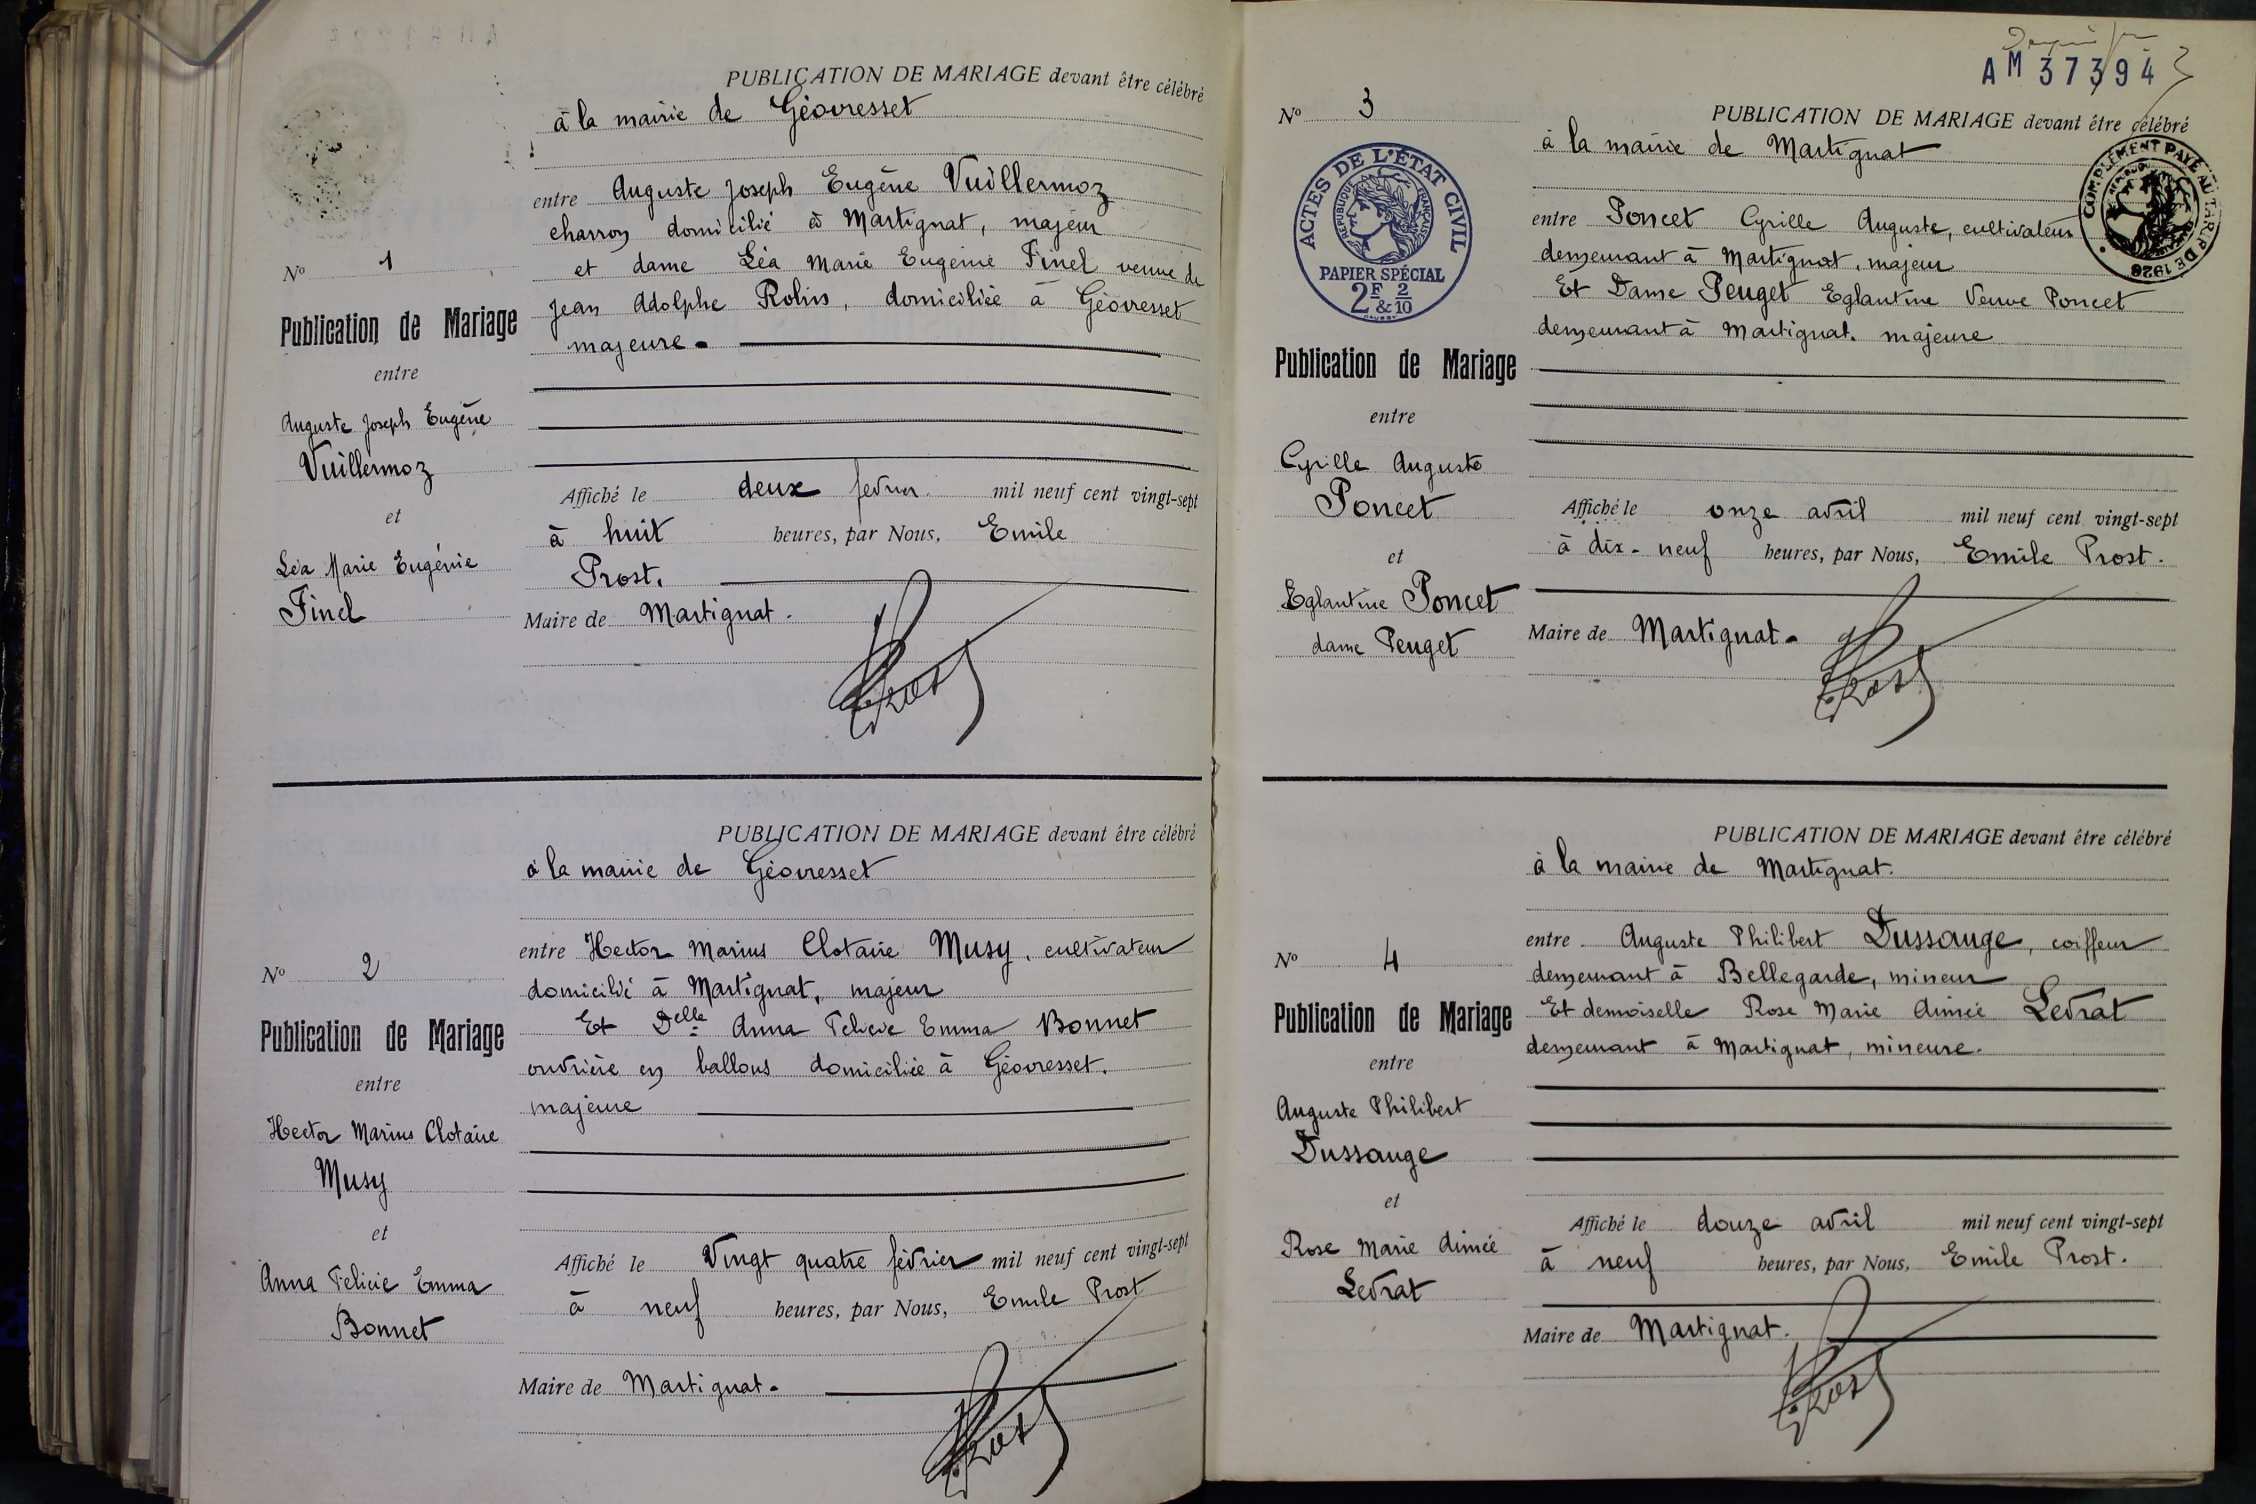 PUBLICATION DE MARIAGE devant être célébré
à la mairie de Géovresset
entre Auguste Joseph Eugène Vuillermoz
charron domicilié à Martignat, majeur
et dame Léa Marie Eugénie Finel veuve de
Jean Adolphe Rolin, domiciliée à Géovresset
majeure.
Nº 1
Publication de Mariage
entre
Auguste Joseph Eugène
Vuillermoz
et
Léa Marie Eugénie
Finel
Affiché le deux fevrier mil neuf cent vingt-sept
à huit heures, par Nous, Emile
Prost.
Maire de Martignat.
Prost
PUBLICATION DE MARIAGE devant être célébré
à la mairie de Géovresset
entre Hector Marius Clotaire Musy, cultivateur
domicilié à Martignat, majeur
Et Delle Anna Felicie Emma Bonnet
ouvrière en ballons domiciliée à Géovresset.
majeure
Nº 2
Publication de Mariage
entre
Hector Marius Clotaire
Musy
et
Anna Felicie Emma
Bonnet
Affiché le Vingt quatre février mil neuf cent vingt-sept
à neuf heures, par Nous, Emile Prost
Maire de Martignat.
Prost
AM 37394
3
Nº 3
PUBLICATION DE MARIAGE devant être célébré
à la mairie de Martignat
COMPLÉMENT PAYÉ AU TARIF DE 1926
entre Poncet Cyrille Auguste, cultivateur
demeurant à Martignat, majeur
Et Dame Peuget Eglantine Veuve Poncet
demeurant à Martignat. majeure
ACTES DE L'ÉTAT CIVIL
RÉPUBLIQUE FRANÇAISE
PAPIER SPÉCIAL
2F & 2/10
Publication de Mariage
entre
Cyrille Auguste
Poncet
et
Eglantine Poncet
dame Peuget
Affiché le onze avril mil neuf cent vingt-sept
à dix-neuf heures, par Nous, Emile Prost.
Maire de Martignat.
Prost
PUBLICATION DE MARIAGE devant être célébré
à la mairie de Martignat.
entre Auguste Philibert Dussauge, coiffeur
demeurant à Bellegarde, mineur
Et demoiselle Rose Marie Aimée Levrat
demeurant à Martignat, mineure.
Nº 4
Publication de Mariage
entre
Auguste Philibert
Dussauge
et
Rose Marie Aimée
Levrat
Affiché le douze avril mil neuf cent vingt-sept
à neuf heures, par Nous, Emile Prost.
Maire de Martignat.
Prost